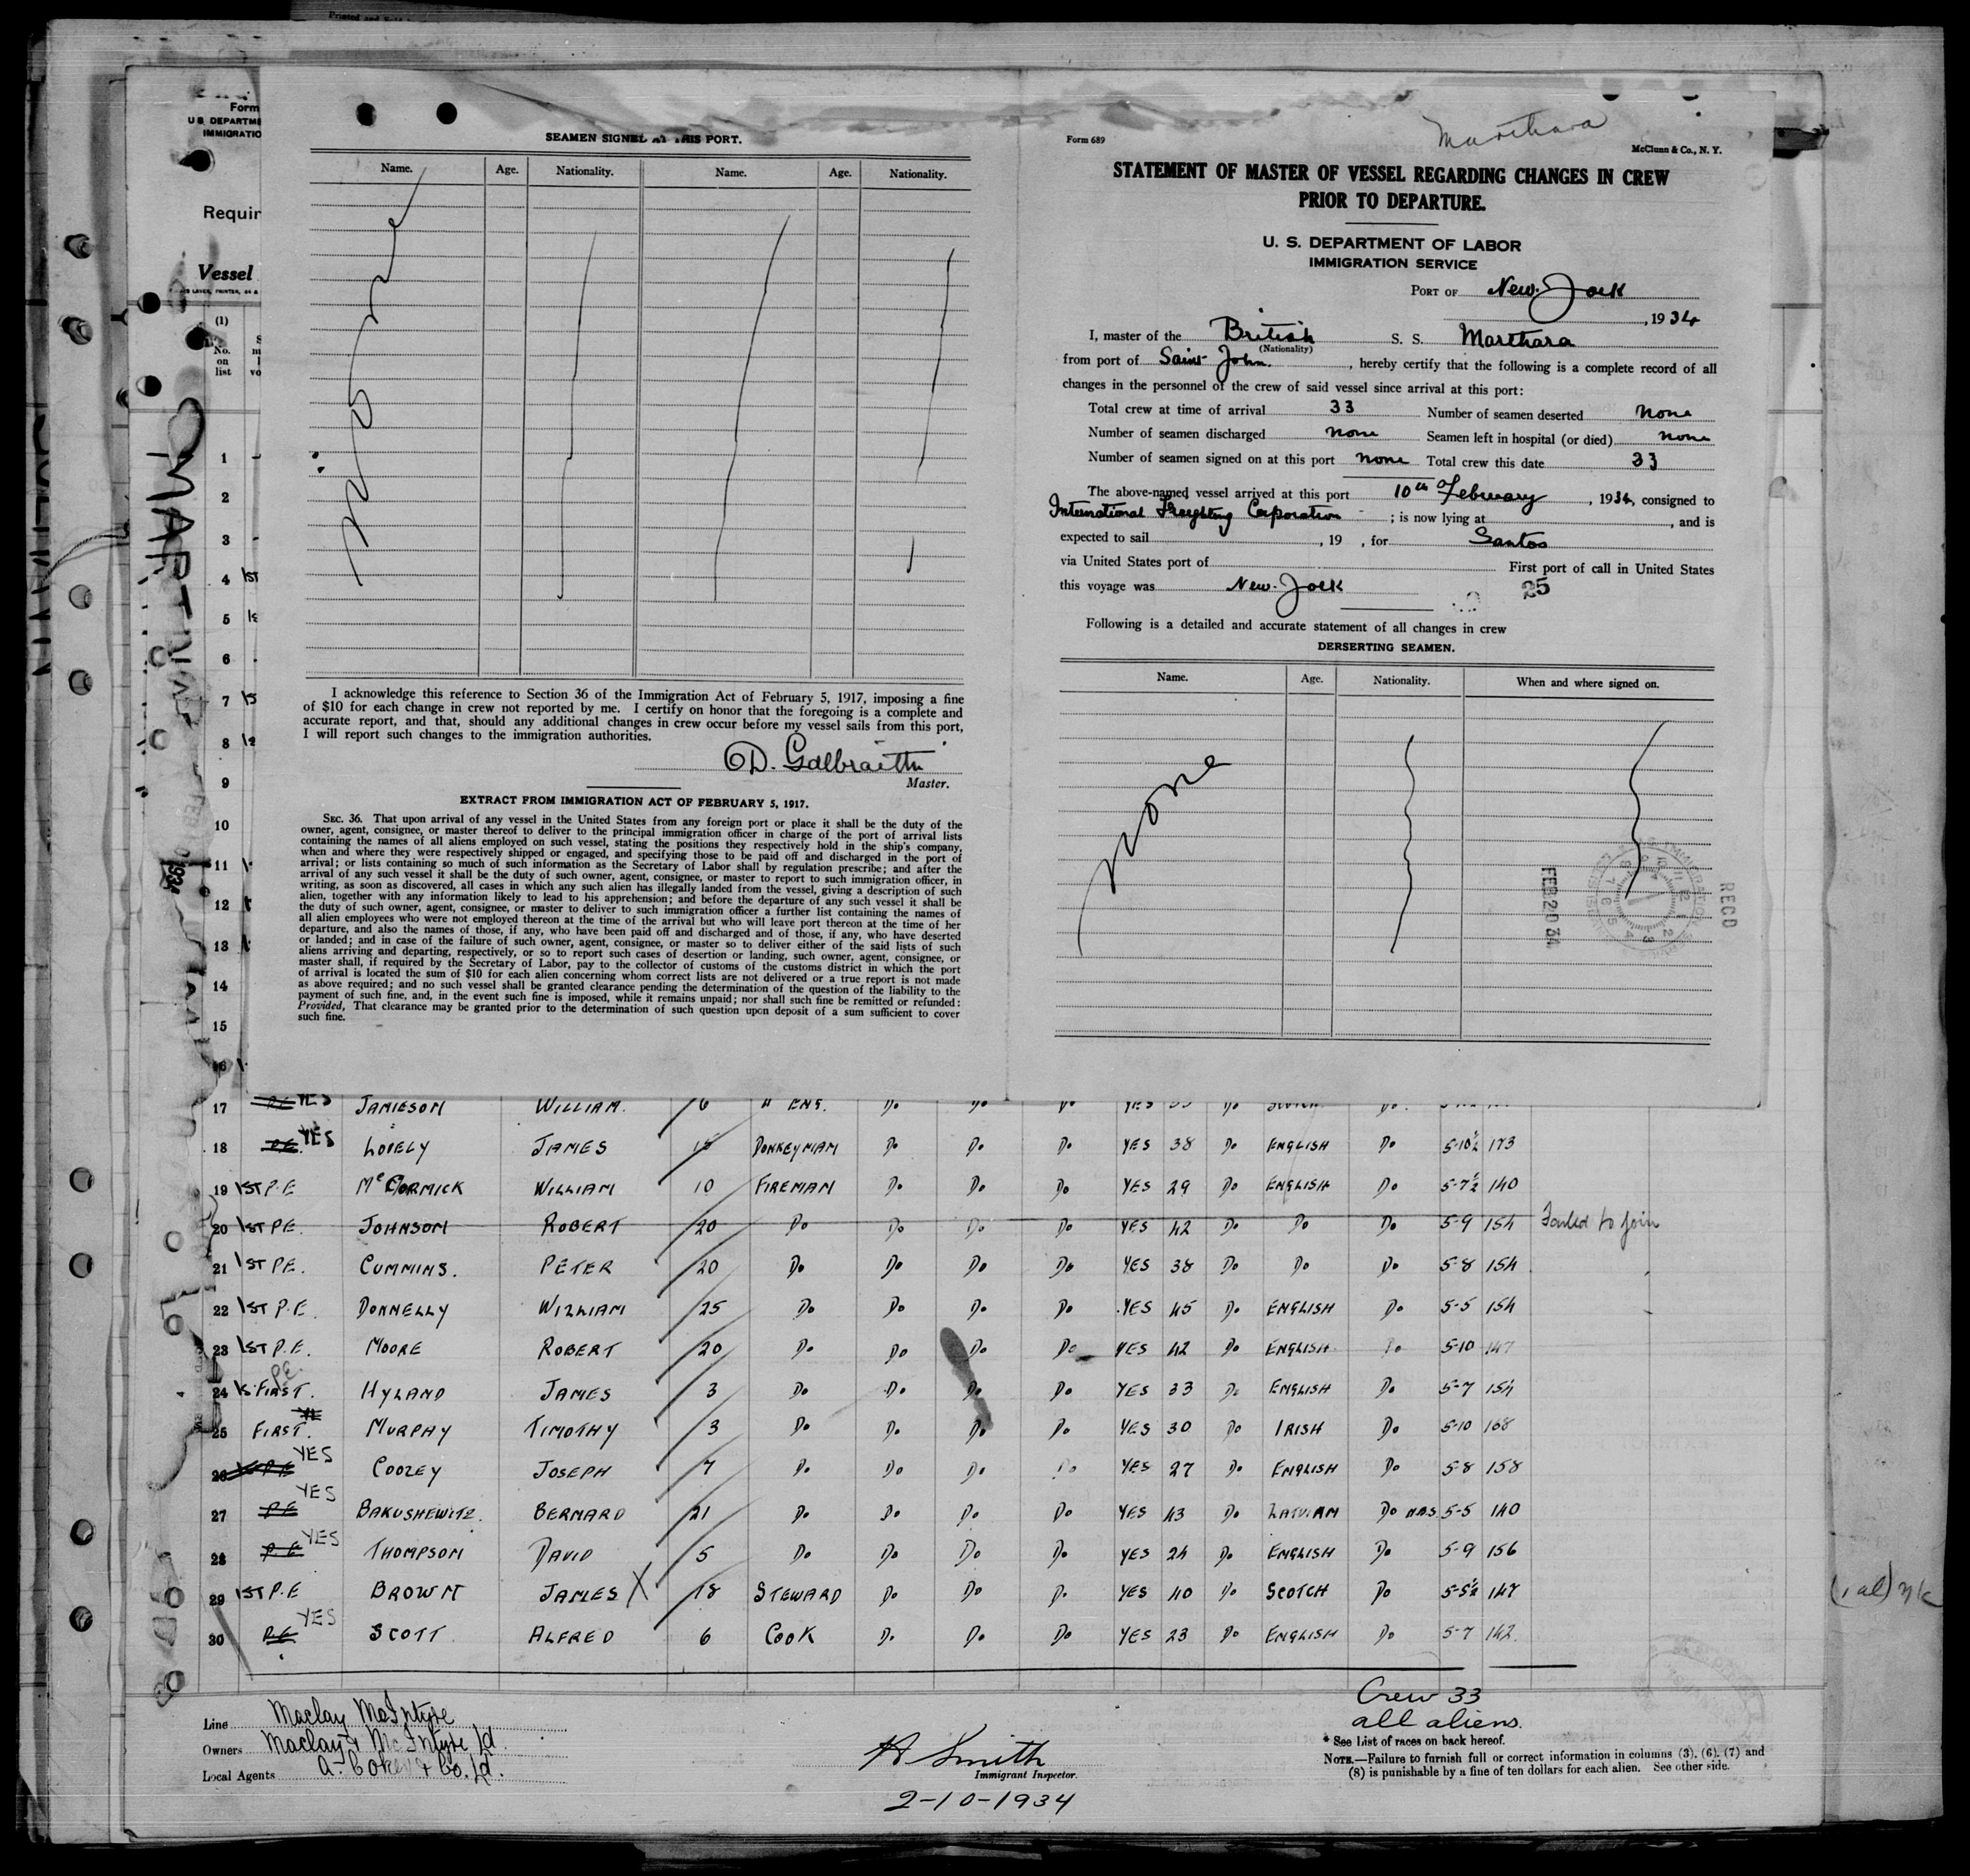 Form
U. S. DEPARTME
IMMIGRATIO
Requir
Vessel
(1)
No.
on
list
SEAMEN SIGNED AT THIS PORT.
Name. Age. Nationality. Name. Age. Nationality.
None
I acknowledge this reference to Section 36 of the Immigration Act of February 5, 1917, imposing a fine
of $10 for each change in crew not reported by me. I certify on honor that the foregoing is a complete and
accurate report, and that, should any additional changes in crew occur before my vessel sails from this port,
I will report such changes to the immigration authorities.
D. Galbraith
Master.
EXTRACT FROM IMMIGRATION ACT OF FEBRUARY 5, 1917.
SEC. 36. That upon arrival of any vessel in the United States from any foreign port or place it shall be the duty of the
owner, agent, consignee, or master thereof to deliver to the principal immigration officer in charge of the port of arrival lists
containing the names of all aliens employed on such vessel, stating the positions they respectively hold in the ship's company,
when and where they were respectively shipped or engaged, and specifying those to be paid off and discharged in the port of
arrival; or lists containing so much of such information as the Secretary of Labor shall by regulation prescribe; and after the
arrival of any such vessel it shall be the duty of such owner, agent, consignee, or master to report to such immigration officer, in
writing, as soon as discovered, all cases in which any such alien has illegally landed from the vessel, giving a description of such
alien, together with any information likely to lead to his apprehension; and before the departure of any such vessel it shall be
the duty of such owner, agent, consignee, or master to deliver to such immigration officer a further list containing the names of
all alien employees who were not employed thereon at the time of the arrival but who will leave port thereon at the time of her
departure, and also the names of those, if any, who have been paid off and discharged and of those, if any, who have deserted
or landed; and in case of the failure of such owner, agent, consignee, or master so to deliver either of the said lists of such
aliens arriving and departing, respectively, or so to report such cases of desertion or landing, such owner, agent, consignee, or
master shall, if required by the Secretary of Labor, pay to the collector of customs of the customs district in which the port
of arrival is located the sum of $10 for each alien concerning whom correct lists are not delivered or a true report is not made
as above required; and no such vessel shall be granted clearance pending the determination of the question of the liability to the
payment of such fine, and, in the event such fine is imposed, while it remains unpaid; nor shall such fine be remitted or refunded:
Provided, That clearance may be granted prior to the determination of such question upon deposit of a sum sufficient to cover
such fine.
Form 689
Marthara
McClunn & Co., N. Y.
STATEMENT OF MASTER OF VESSEL REGARDING CHANGES IN CREW
PRIOR TO DEPARTURE.
U. S. DEPARTMENT OF LABOR
IMMIGRATION SERVICE
PORT OF New York
, 1934
I, master of the British S. S. Marthara
(Nationality)
from port of Saint John. , hereby certify that the following is a complete record of all
changes in the personnel of the crew of said vessel since arrival at this port:
Total crew at time of arrival 33 Number of seamen deserted none
Number of seamen discharged none Seamen left in hospital (or died) none
Number of seamen signed on at this port none Total crew this date 33
The above-named vessel arrived at this port 10th February , 1934, consigned to
International Freighting Corporation ; is now lying at , and is
expected to sail , 19 , for Santos
via United States port of First port of call in United States
this voyage was New York 25
Following is a detailed and accurate statement of all changes in crew
DERSERTING SEAMEN.
Name. Age. Nationality. When and where signed on.
None
RECD
FEB 20 34
1
2
3
4 1ST
5
6
7
8
9
10
11
12
13
14
15
16
17 YES JAMIESON WILLIAM. 6 " ENG. Do Do Do YES Do SCOTCH Do.
18 P.E. YES LOVELY JAMES 15 DONKEYMAN Do Do Do YES 38 Do ENGLISH Do 5-10½ 173
19 1ST P.E McCORMICK WILLIAM 10 FIREMAN Do Do Do YES 29 Do ENGLISH Do 5-7½ 140
20 1ST P.E. JOHNSON ROBERT 20 Do Do Do Do YES 42 Do Do Do 5-9 154 Failed to join
21 1ST P.E. CUMMINS. PETER 20 Do Do Do Do YES 38 Do Do Do 5-8 154
22 1ST P.E DONNELLY WILLIAM 25 Do Do Do Do YES 45 Do ENGLISH Do 5-5 154
23 1ST P.E. MOORE ROBERT 20 Do Do Do Do YES 42 Do ENGLISH Do 5-10 147
24 FIRST. PE HYLAND JAMES 3 Do Do Do Do YES 33 Do ENGLISH Do 5-7 154
25 FIRST. MURPHY TIMOTHY 3 Do Do Do Do YES 30 Do IRISH Do 5-10 168
26 P.E YES COOZEY JOSEPH 7 Do Do Do Do YES 27 Do ENGLISH Do 5-8 158
27 P.E YES BAKUSHEWITZ. BERNARD 21 Do Do Do Do YES 43 Do LATVIAN Do 5-5 140
28 P.E YES THOMPSON DAVID 5 Do Do Do Do YES 24 Do ENGLISH Do 5-9 156
29 1ST P.E BROWN JAMES X 18 STEWARD Do Do Do YES 40 Do SCOTCH Do 5-5½ 147
30 P.E. YES SCOTT ALFRED 6 COOK Do Do Do YES 23 Do ENGLISH Do 5-7 142.
Line Maclay McIntyre
Owners Maclay & McIntyre Ld.
Local Agents
H Smith
Immigrant Inspector.
2-10-1934
Crew 33
all aliens.
* See List of races on back hereof.
NOTE.—Failure to furnish full or correct information in columns (3), (6), (7) and
(8) is punishable by a fine of ten dollars for each alien. See other side.